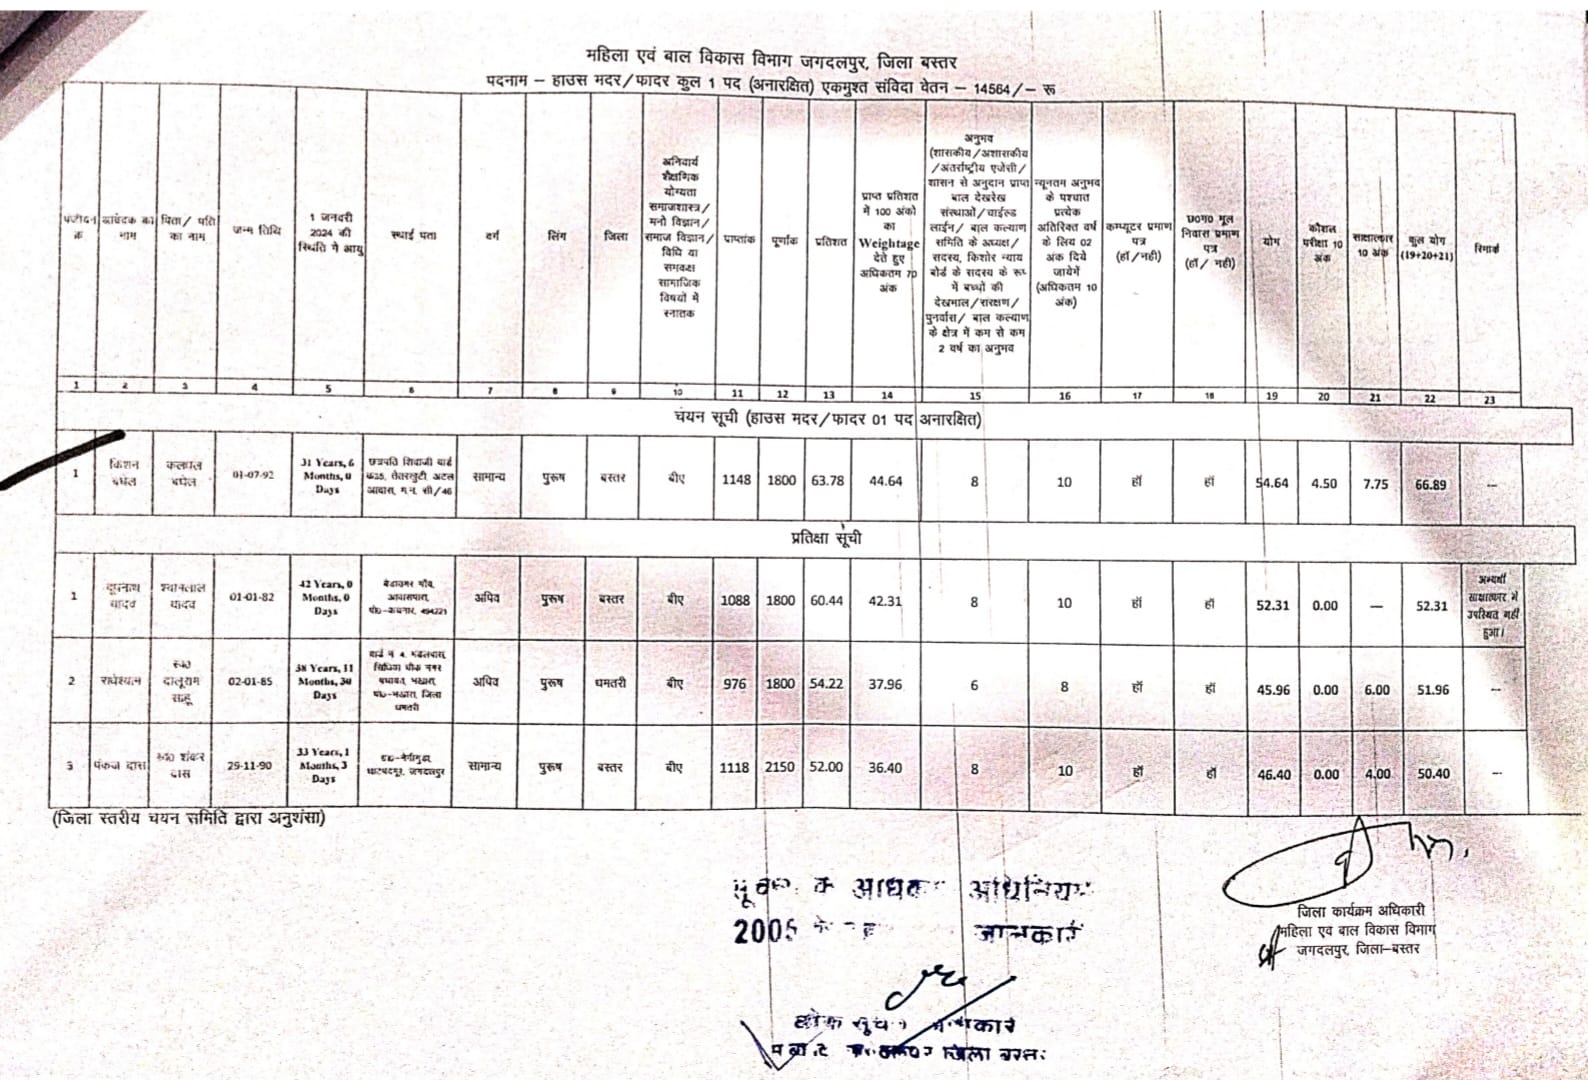 महिला एवं बाल विकास विभाग जगदलपुर, जिला बस्तर
पदनाम – हाउस मदर/फादर कुल 1 पद (अनारक्षित) एकमुश्त संविदा वेतन – 14564/– रू
पंजीयन क्र | आवेदक का नाम | पिता/ पति का नाम | जन्म तिथि | 1 जनवरी 2024 की स्थिति में आयु | स्थाई पता | वर्ग | लिंग | जिला | अनिवार्य शैक्षणिक योग्यता समाजशास्त्र/ मनो विज्ञान/ समाज विज्ञान/ विधि या समकक्ष सामाजिक विषयों में स्नातक | प्राप्तांक | पूर्णांक | प्रतिशत | प्राप्त प्रतिशत में 100 अंको का Weightage देते हुए अधिकतम 70 अंक | अनुभव (शासकीय/अशासकीय /अंतर्राष्ट्रीय एजेंसी/ शासन से अनुदान प्राप्त बाल देखरेख संस्थाओं/चाईल्ड लाईन/ बाल कल्याण समिति के अध्यक्ष/ सदस्य, किशोर न्याय बोर्ड के सदस्य के रूप में बच्चों की देखभाल/संरक्षण/ पुनर्वास/ बाल कल्याण के क्षेत्र में कम से कम 2 वर्ष का अनुभव | न्यूनतम अनुभव के पश्चात प्रत्येक अतिरिक्त वर्ष के लिय 02 अंक दिये जायेगें (अधिकतम 10 अंक) | कम्प्यूटर प्रमाण पत्र (हॉ/नही) | छ0ग0 मूल निवास प्रमाण पत्र (हॉ/ नही) | योग | कौशल परीक्षा 10 अंक | साक्षात्कार 10 अंक | कूल योग (19+20+21) | रिमार्क
1 | 2 | 3 | 4 | 5 | 6 | 7 | 8 | 9 | 10 | 11 | 12 | 13 | 14 | 15 | 16 | 17 | 18 | 19 | 20 | 21 | 22 | 23
चयन सूची (हाउस मदर/फादर 01 पद अनारक्षित)
1 | किशन बघेल | बघेल | 01-07-92 | 31 Years, 6 Months, 0 Days | छत्रपति शिवाजी वार्ड अटल आवास, म.न. सी/46 | सामान्य | पुरूष | बस्तर | बीए | 1148 | 1800 | 63.78 | 44.64 | 8 | 10 | हॉ | हॉ | 54.64 | 4.50 | 7.75 | 66.89 | --
प्रतिक्षा सूची
1 | यादव | श्यामलाल यादव | 01-01-82 | 42 Years, 0 Months, 0 Days | 494221 | अपिव | पुरूष | बस्तर | बीए | 1088 | 1800 | 60.44 | 42.31 | 8 | 10 | हॉ | हॉ | 52.31 | 0.00 | — | 52.31 | अभ्यर्थी साक्षात्कार में उपस्थित नहीं हुआ।
2 | राधेश्याम | स्व0 दालूराम साहू | 02-01-85 | 38 Years, 11 Months, 30 Days | वार्ड नं 4, जिला धमतरी | अपिव | पुरूष | धमतरी | बीए | 976 | 1800 | 54.22 | 37.96 | 6 | 8 | हॉ | हॉ | 45.96 | 0.00 | 6.00 | 51.96 | --
3 | पंकज दास | स्व0 शंकर दास | 29-11-90 | 33 Years, 1 Months, 3 Days | जगदलपुर | सामान्य | पुरूष | बस्तर | बीए | 1118 | 2150 | 52.00 | 36.40 | 8 | 10 | हॉ | हॉ | 46.40 | 0.00 | 4.00 | 50.40 | --
(जिला स्तरीय चयन समिति द्वारा अनुशंसा)
अधिनियम
2005 जानकारी
जिला कार्यक्रम अधिकारी
महिला एवं बाल विकास विभाग
जगदलपुर, जिला–बस्तर